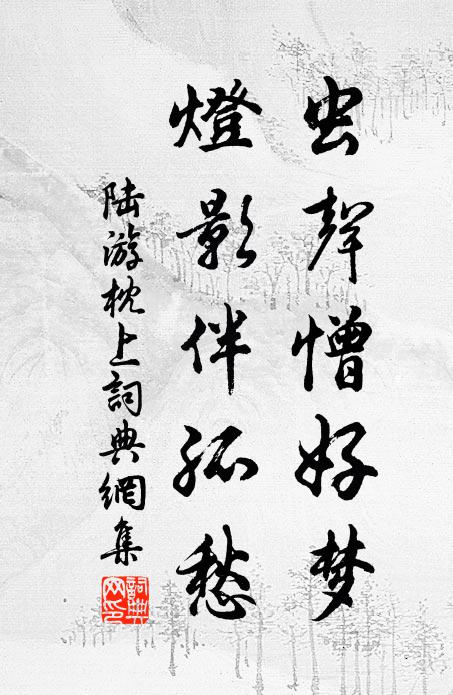 虫聲憎好梦
燈影伴孤愁
陆游枕上詞典網集
詞典网印